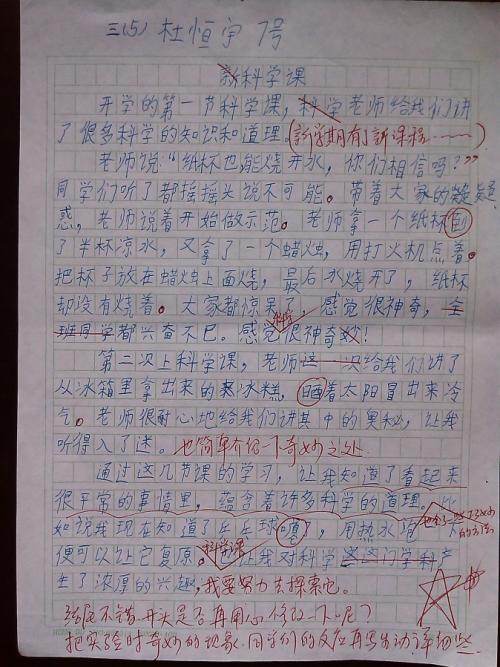 三(5) 杜恒宇 7号
新科学课
开学的第一节科学课，科学老师给我们讲
了很多科学的知识和道理。(新学期有了新课程……)
老师说：“纸杯也能烧开水，你们相信吗？”
同学们听了都摇摇头说不可能。带着大家的疑
惑，老师说着开始做示范。老师拿一个纸杯倒
了半杯凉水，又拿了一个蜡烛，用打火机点着。
把杯子放在蜡烛上面烧，最后水烧开了，纸杯
却没有烧着。大家都惊呆了，感觉很神奇，全
班同学都兴奋不已。感觉科学很神奇妙！
第二次上科学课，老师这一次给我们讲了
从冰箱里拿出来的冰糕，晒着太阳冒出来冷
气。老师很耐心地给我们讲其中的奥秘，让我
听得入了迷。也简单介绍一下奇妙之处
通过这几节课的学习，让我知道了看起来
很平常的事情里，蕴含着许多科学的道理。比
如说我现在知道了乒乓球，用热水
便可以让它复原。科学课让我对科学这门学科产
生了浓厚的兴趣，我要努力去探索它。
结尾不错。开头是否再用心修改一下呢？
把实验时奇妙的现象、同学们的反应再写生动详细些